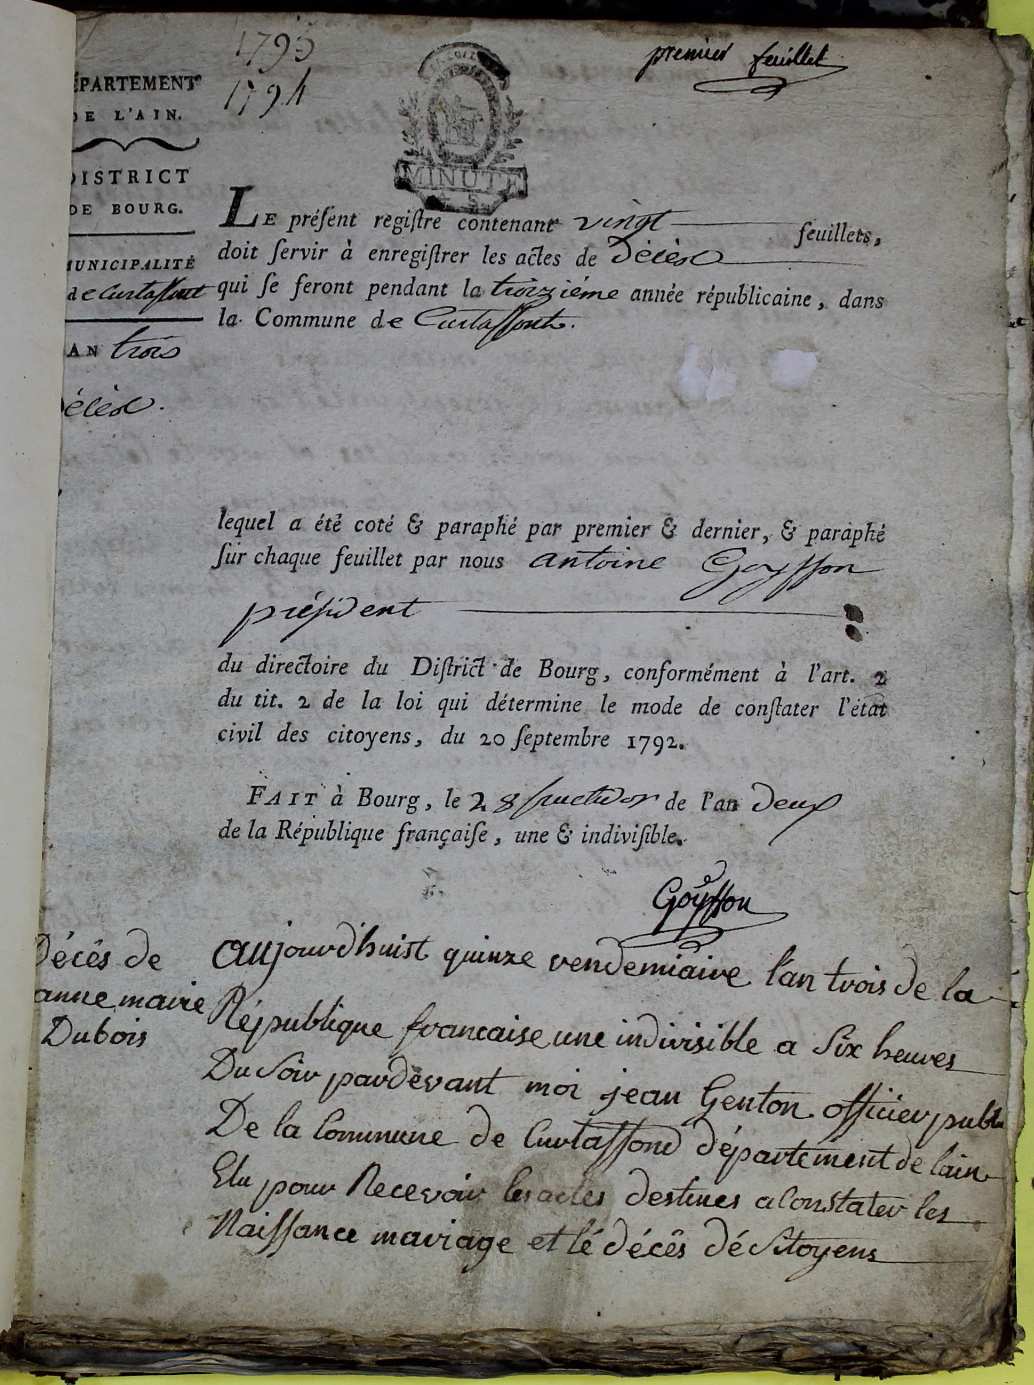 1793
1794
premier feuillet
ÉPARTEMENT
DE L'AIN.
DISTRICT
DE BOURG.
MUNICIPALITÉ
de Curtaffont
AN trois
écès.
MINUTE
LE préſent regiſtre contenant vingt feuillets,
doit ſervir à enregiſtrer les actes de Décès
qui ſe feront pendant la troizième année républicaine, dans
la Commune de Curtaffont.
lequel a été coté & paraphé par premier & dernier, & paraphé
ſur chaque feuillet par nous antoine Goyffon
préſident
du directoire du Diſtrict de Bourg, conformément à l'art. 2
du tit. 2 de la loi qui détermine le mode de conſtater l'état
civil des citoyens, du 20 ſeptembre 1792.
FAIT à Bourg, le 28 fructidor de l'an deux
de la République françaiſe, une & indiviſible.
Goyffon
Décês de
anne marie
Dubois
aujourd'huist quinze vendemiaire l'an trois de la
République francaise une indivisible a Six heures
Du Soir pardevant moi jean Genton officier public
De la Commune de Curtaffond département de lain
Elu pour Recevoir les actes destines a Constater les
Naissance mariage et lé décês dé Sitoyens